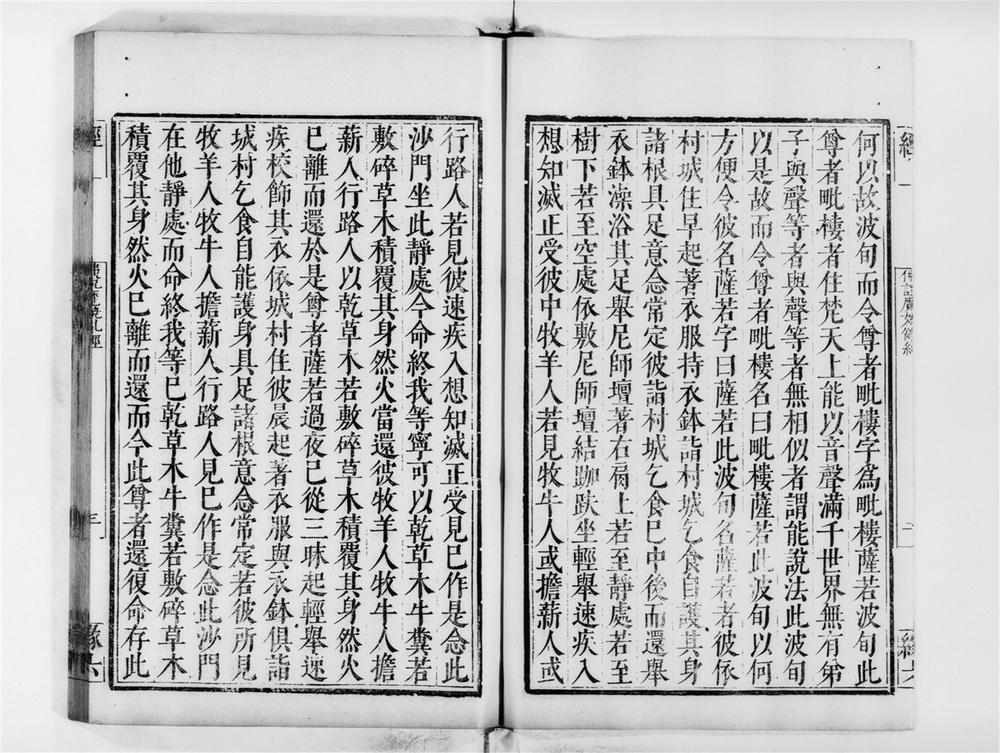 何以故波旬而令尊者毗樓字為毗樓薩若波旬此
尊者毗樓者住梵天上能以音聲滿千世界無有第
子與聲等者與聲等者無相似者謂能說法此波旬
以是故而令尊者毗樓名曰毗樓薩若此波旬以何
方便令彼名薩若字曰薩若此波旬名薩若者彼依
村城住早起著衣服持衣鉢詣村城乞食自護其身
諸根具足意念常定彼詣村城乞食已中後而還舉
衣鉢澡浴其足舉尼師壇著右肩上若至靜處若至
樹下若至空處依敷尼師壇結跏趺坐輕舉速疾入
想知滅正受彼中牧羊人若見牧牛人或擔薪人或
行路人若見彼速疾入想知滅正受見已作是念此
沙門坐此靜處今命終我等寧可以乾草木牛糞若
敷碎草木積覆其身然火當還彼牧羊人牧牛人擔
薪人行路人以乾草木若敷碎草木積覆其身然火
已離而還於是尊者薩若過夜已從三昧起輕舉速
疾校飾其衣依城村住彼晨起著衣服與衣鉢俱詣
城村乞食自能護身具足諸根意念常定若彼所見
牧羊人牧牛人擔薪人行路人見已作是念此沙門
在他靜處而命終我等已乾草木牛糞若敷碎草木
積覆其身然火已離而還而今此尊者還復命存此